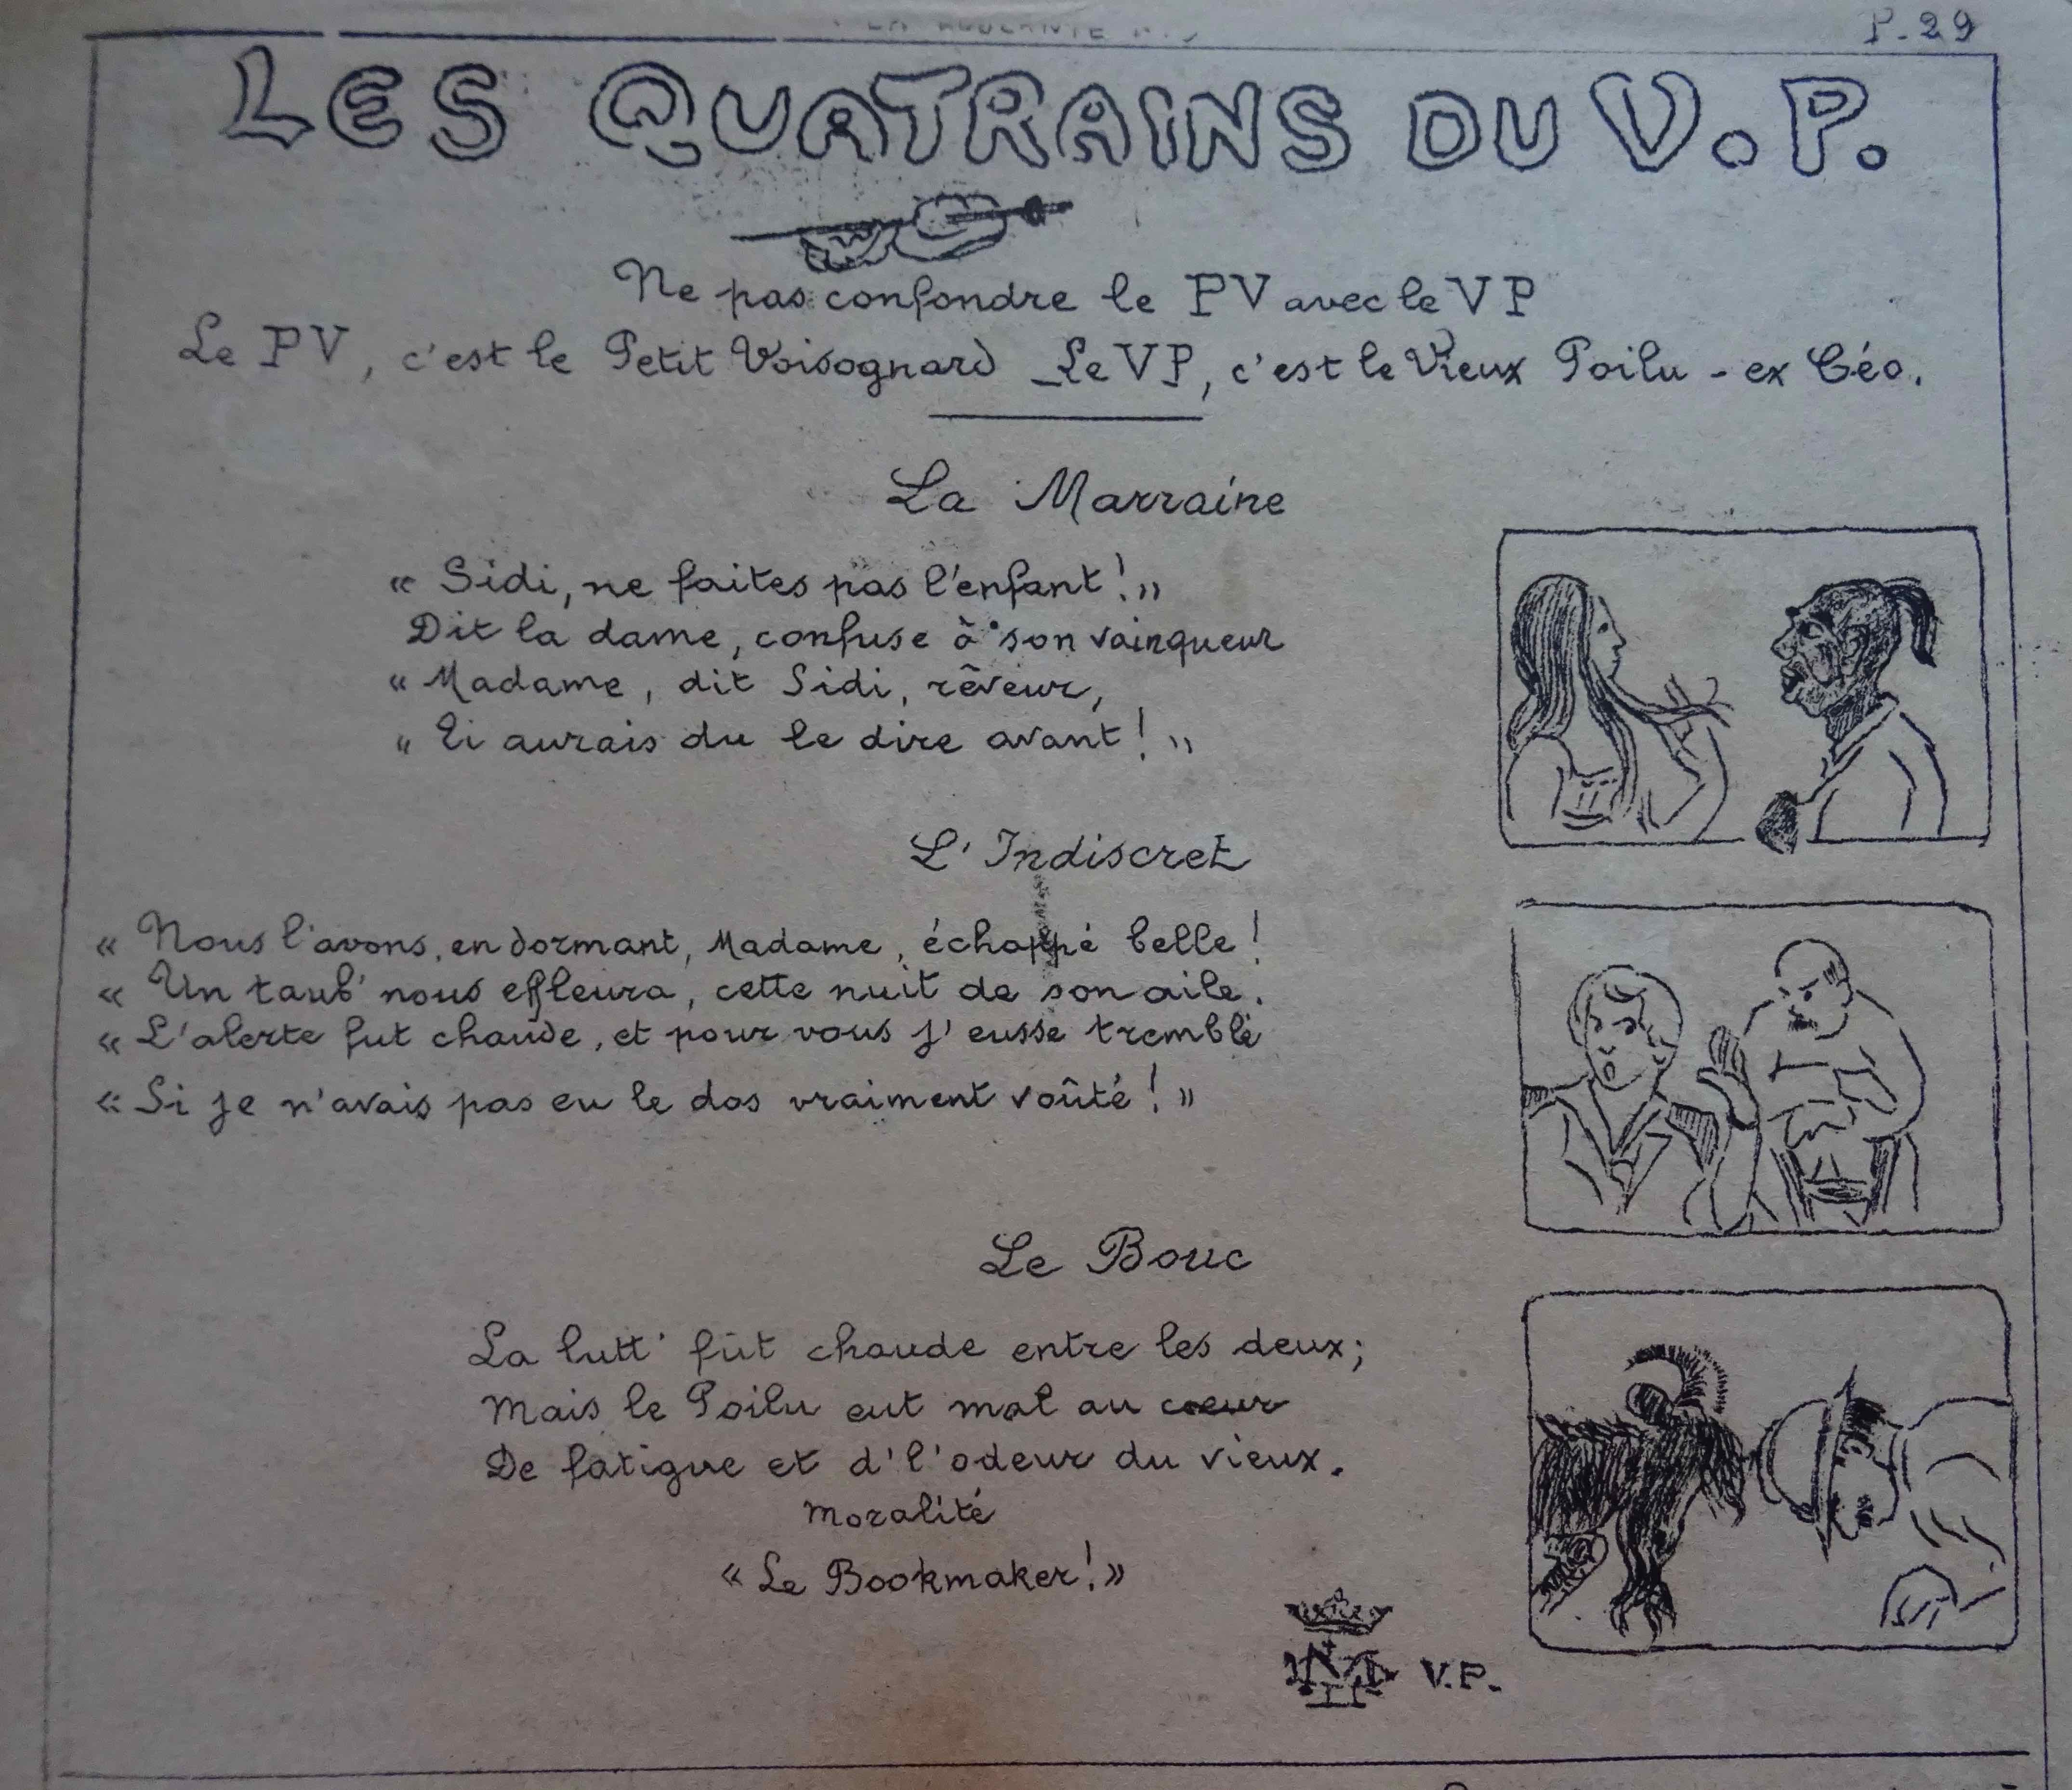 P. 29
LES QUATRAINS DU V.P.
Ne pas confondre le PV avec le VP
Le PV, c'est le Petit Voisognard _ Le VP, c'est le Vieux Poilu - ex Géo.
La Marraine
« Sidi, ne faites pas l'enfant! »
Dit la dame, confuse à son vainqueur
« Madame, dit Sidi, rêveur,
« Ti aurais du le dire avant! »
L'Indiscret
« Nous l'avons, en dormant, Madame, échappé belle!
« Un taub' nous effleura, cette nuit de son aile.
« L'alerte fut chaude, et pour vous j'eusse tremblé
« Si je n'avais pas eu le dos vraiment voûté! »
Le Bouc
La lutt' fut chaude entre les deux;
Mais le Poilu eut mal au cœur
De fatigue et d'l'odeur du vieux.
Moralité
« Le Bookmaker! »
V.P.